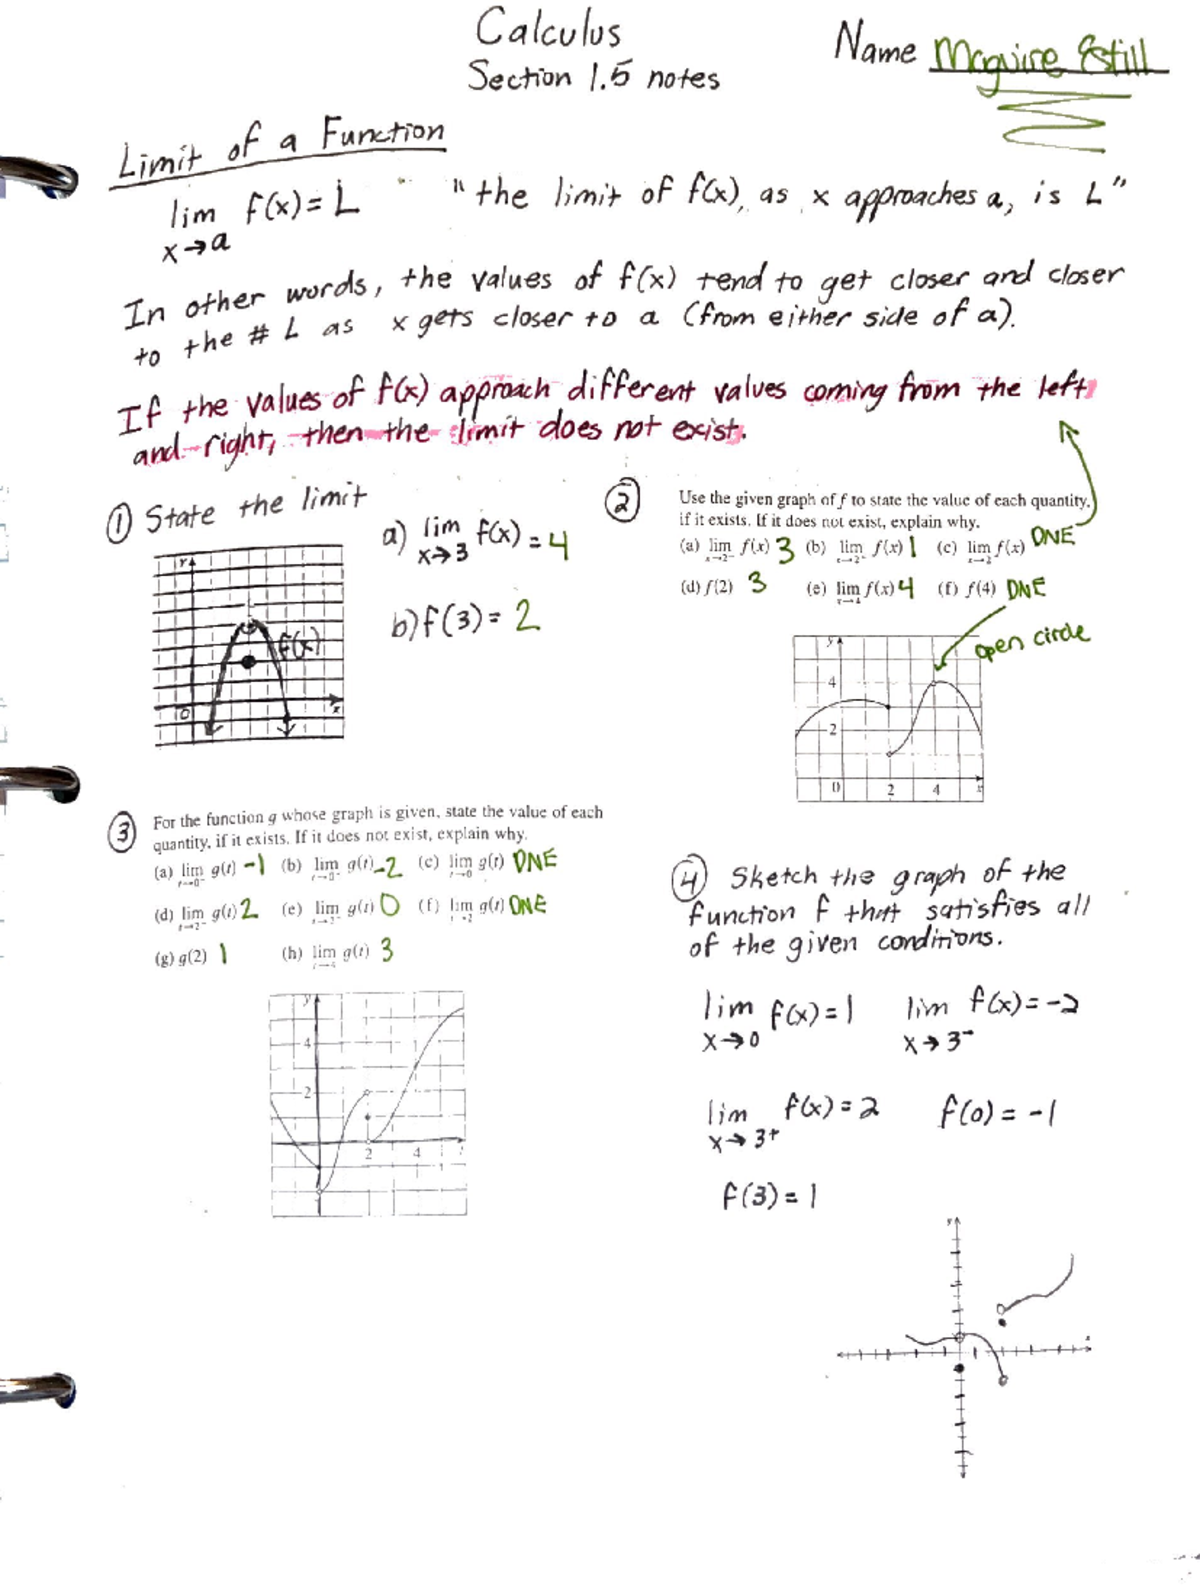 Calculus
Section 1.5 notes
Name Maguire Estill
Limit of a Function
lim f(x) = L "the limit of f(x), as x approaches a, is L"
x→a
In other words, the values of f(x) tend to get closer and closer
to the # L as x gets closer to a (from either side of a).
If the values of f(x) approach different values coming from the left
and right, then the limit does not exist.
① State the limit
a) lim f(x) = 4
x→3
b) f(3) = 2
y
f(x)
0
x
② Use the given graph of f to state the value of each quantity,
if it exists. If it does not exist, explain why.
(a) lim f(x) 3 (b) lim f(x) 1 (c) lim f(x) DNE
x→2⁻ x→2⁺ x→2
(d) f(2) 3 (e) lim f(x) 4 (f) f(4) DNE
x→4
open circle
y
4
2
0 2 4 x
③ For the function g whose graph is given, state the value of each
quantity, if it exists. If it does not exist, explain why.
(a) lim g(t) -1 (b) lim g(t) -2 (c) lim g(t) DNE
t→0⁻ t→0⁺ t→0
(d) lim g(t) 2 (e) lim g(t) 0 (f) lim g(t) DNE
t→2⁻ t→2⁺ t→2
(g) g(2) 1 (h) lim g(t) 3
t→4
y
4
2
2 4 t
④ Sketch the graph of the
function f that satisfies all
of the given conditions.
lim f(x) = 1 lim f(x) = -2
x→0 x→3⁻
lim f(x) = 2 f(0) = -1
x→3+
f(3) = 1
y
x